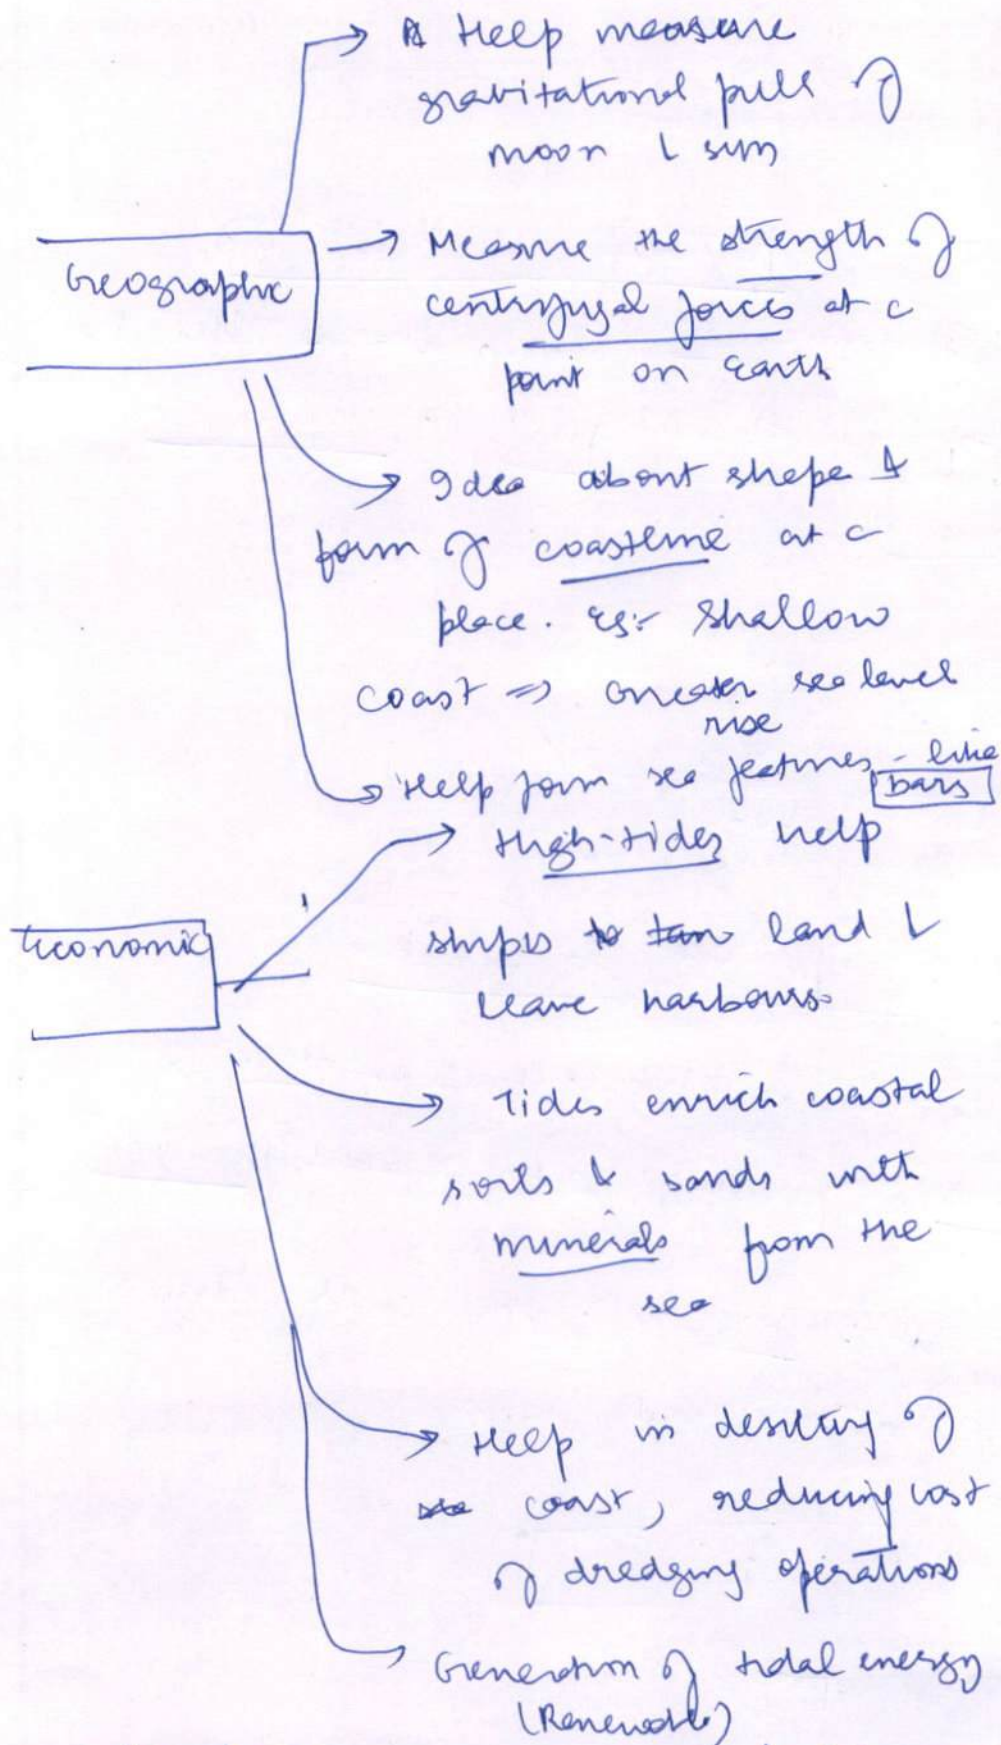 Help measure
gravitational pull of
moon & sun
Geographic
Measure the strength of
centrifugal forces at a
point on Earth
Idea about shape &
form of coastline at a
place. Eg:- Shallow
coast => Greater sea level
rise
Help form sea features - like
bars
High-tides help
Economic
ships to land &
leave harbours.
Tides enrich coastal
soils & sands with
minerals from the
sea
Help in desilting of
coast, reducing cost
of dredging operations
Generation of tidal energy
(Renewable)